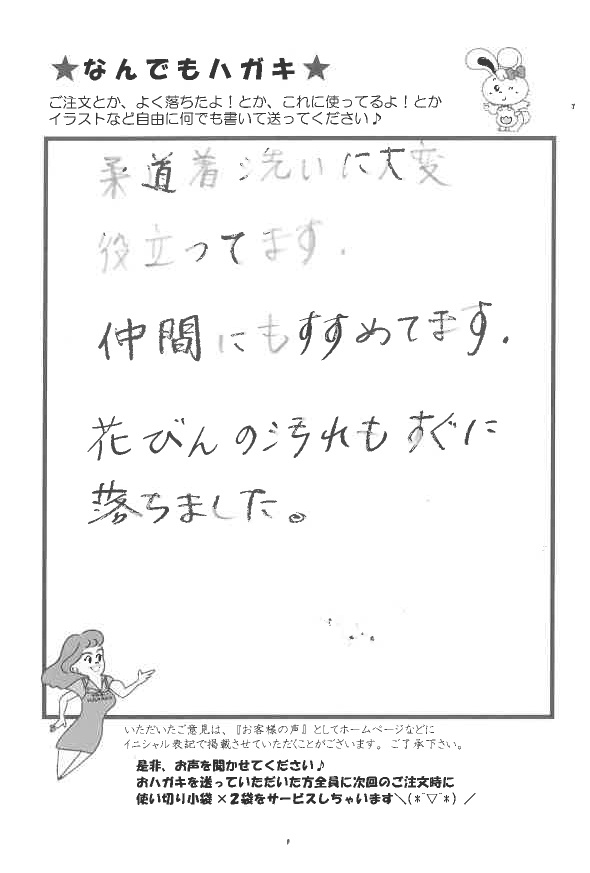 ★なんでもハガキ★
ご注文とか、よく落ちたよ！とか、これに使ってるよ！とか
イラストなど自由に何でも書いて送ってください♪
柔道着洗いに大変
役立ってます.
仲間にもすすめてます.
花びんの汚れもすぐに
落ちました。
いただいたご意見は、『お客様の声』としてホームページなどに
イニシャル表記で掲載させていただくことがございます。ご了承下さい。
是非、お声を聞かせてください♪
おハガキを送っていただいた方全員に次回のご注文時に
使い切り小袋×2袋をサービスしちゃいます＼(*ˆ▽ˆ*)／